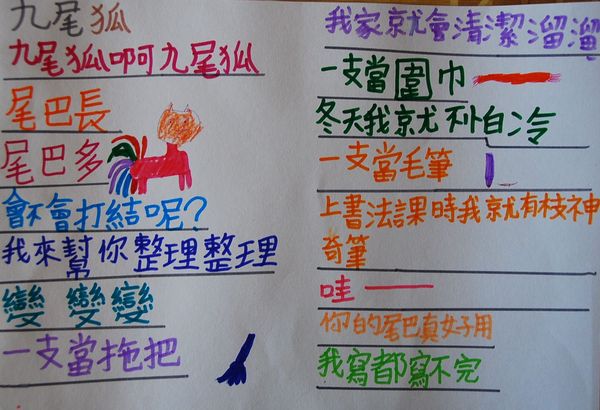 九尾狐
九尾狐啊九尾狐
尾巴長
尾巴多
會不會打結呢?
我來幫你整理整理
變 變變
一支當拖把
我家就會清潔溜溜
一支當圍巾
冬天我就不怕冷
一支當毛筆
上書法課時我就有枝神
奇筆
哇——
你的尾巴真好用
我寫都寫不完